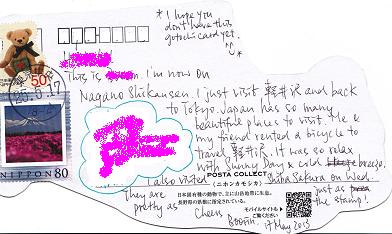 * I hope you
don't have this
gotochi card yet.
^^ *
50
This is I'm now on
Nagano Shikansen. I just visit 軽井沢 and back
to Tokyo. Japan has so many
beautiful places to visit. Me &
my friend rented a bicycle to
Travel 軽井沢. It was so relax
with sunny Day & cold breeze.
I also visited Shiba Sakura on Wed.
They are pretty as just as the stamp!
Cheers
17 May 2013
25.5.17
NIPPON 80
POSTA COLLECT
(ニホンカモシカ)
日本固有の動物で、主に山岳地帯に生息。
長野県の県獣に指定されている。
モバイルサイトも
ご覧ください